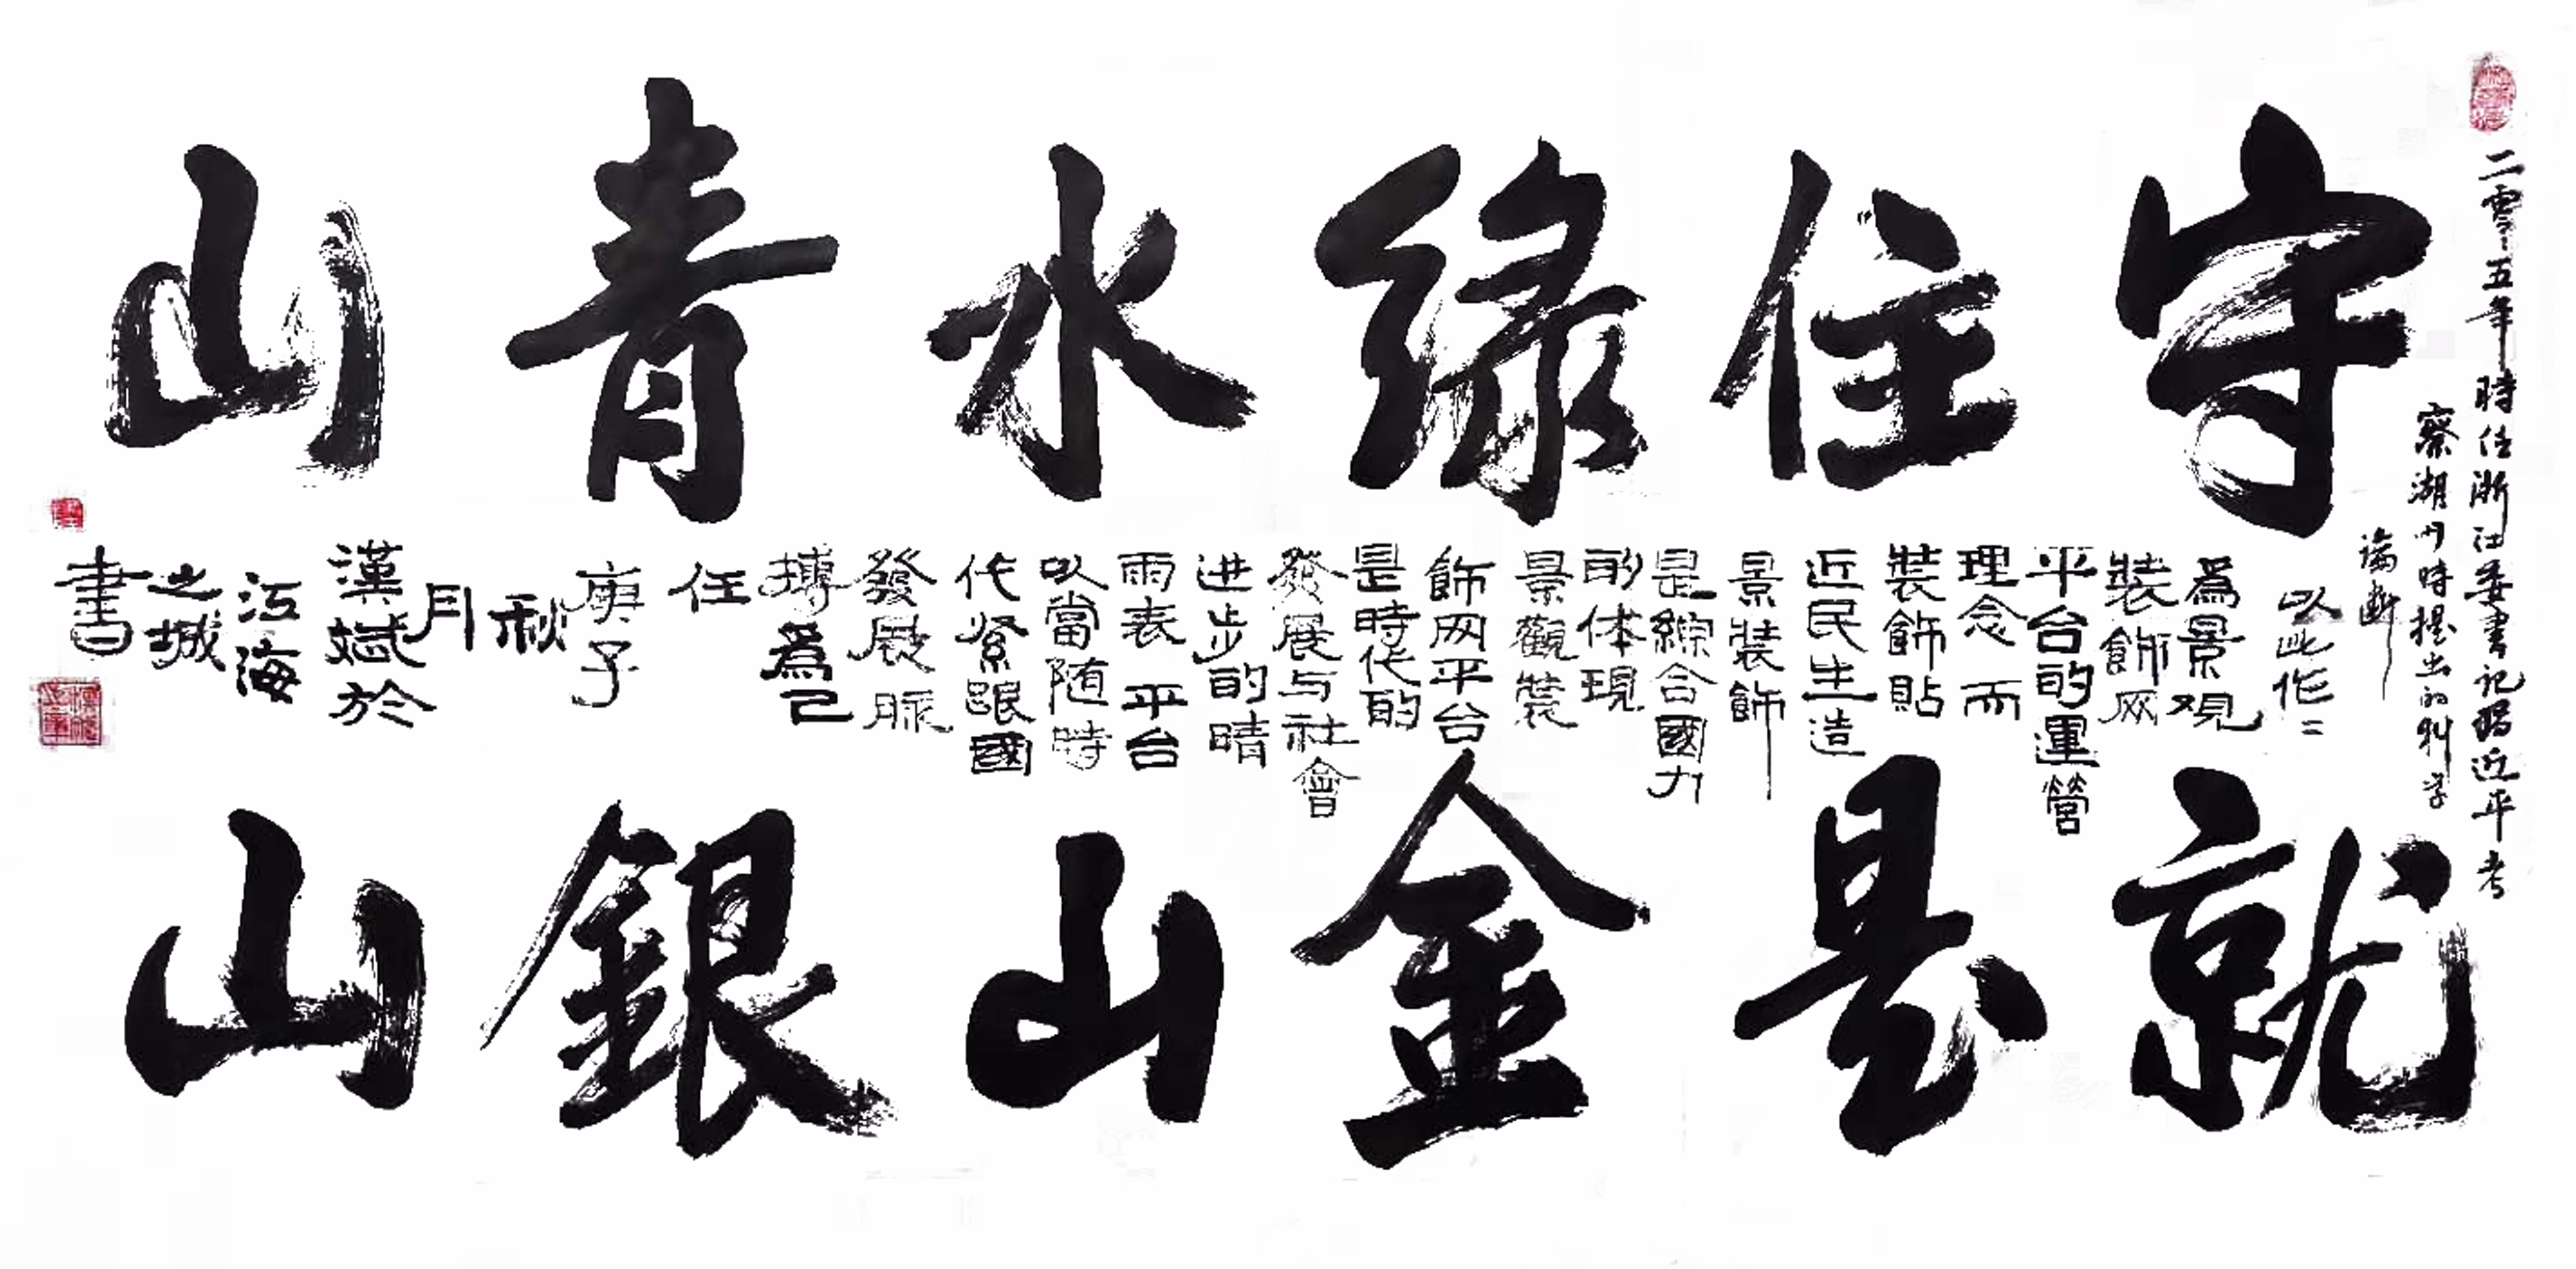 守住绿水青山
就是金山銀山
二零零五年時任浙江委書記習近平考
察湖州時提出的科学
論断
以此作
為景观
裝飾网
平台的運營
理念而
裝飾貼
近民生造
景装飾
是綜合國力
的体現
景觀裝
飾网平台
是時代的
發展与社會
进步的晴
雨表平台
以當随時
代紧跟國
發展脈
搏為己
任
庚子
秋
月
漢斌於
江海
之城
書